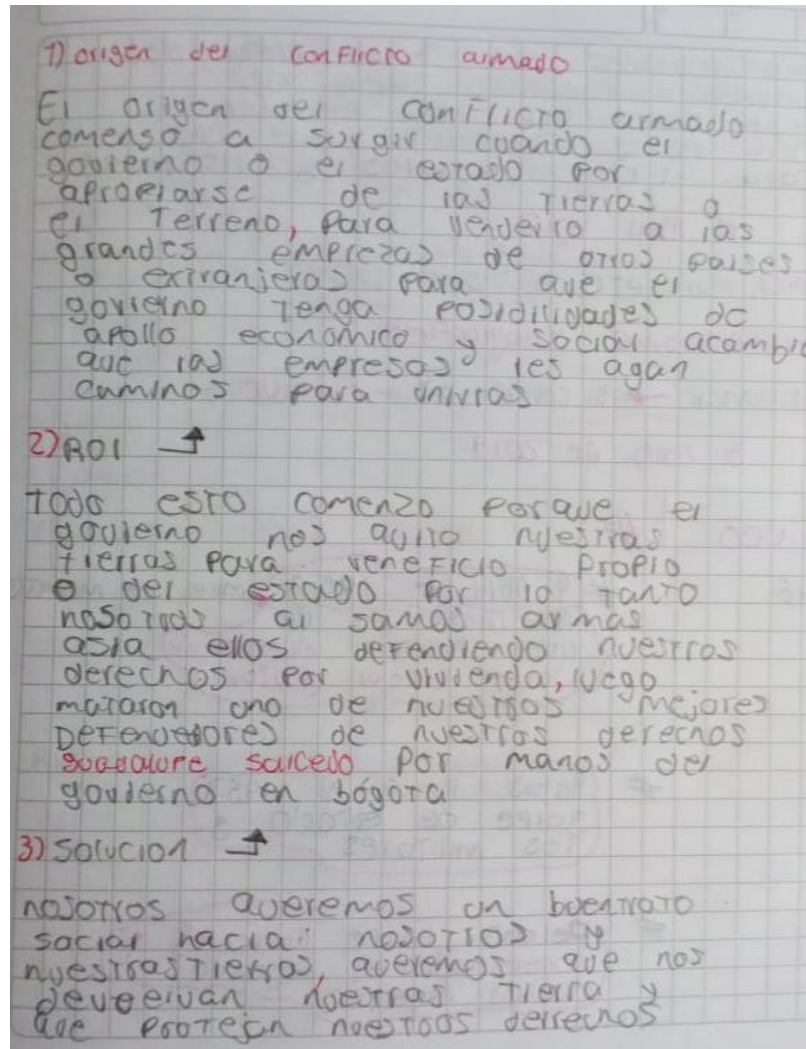 1) origen del conflicto armado
El origen del conflicto armado
comenso a surgir cuando el
govierno o el estado por
apropiarse de las tierras o
el terreno, para venderlo a las
grandes emprezas de otros paises
o extranjeras para que el
govierno tenga posidilidades de
apollo economico y social acambio
que las empresas les agan
caminos para
2) ROL
todo esto comenzo porque el
govierno nos quito nuestras
tierras para veneficio propio
o del estado por lo tanto
nosotros al samos armas
asia ellos defendiendo nuestros
derechos por vivienda, luego
mataron uno de nuestros mejores
Defensores de nuestros derechos
guadalupe salcedo por manos del
govierno en bógota
3) solucion
nosotros queremos un buentrato
social hacia nosotros y
nuestras Tierras, queremos que nos
devuelvan nuestras tierra y
que protejan nuestros derrechos